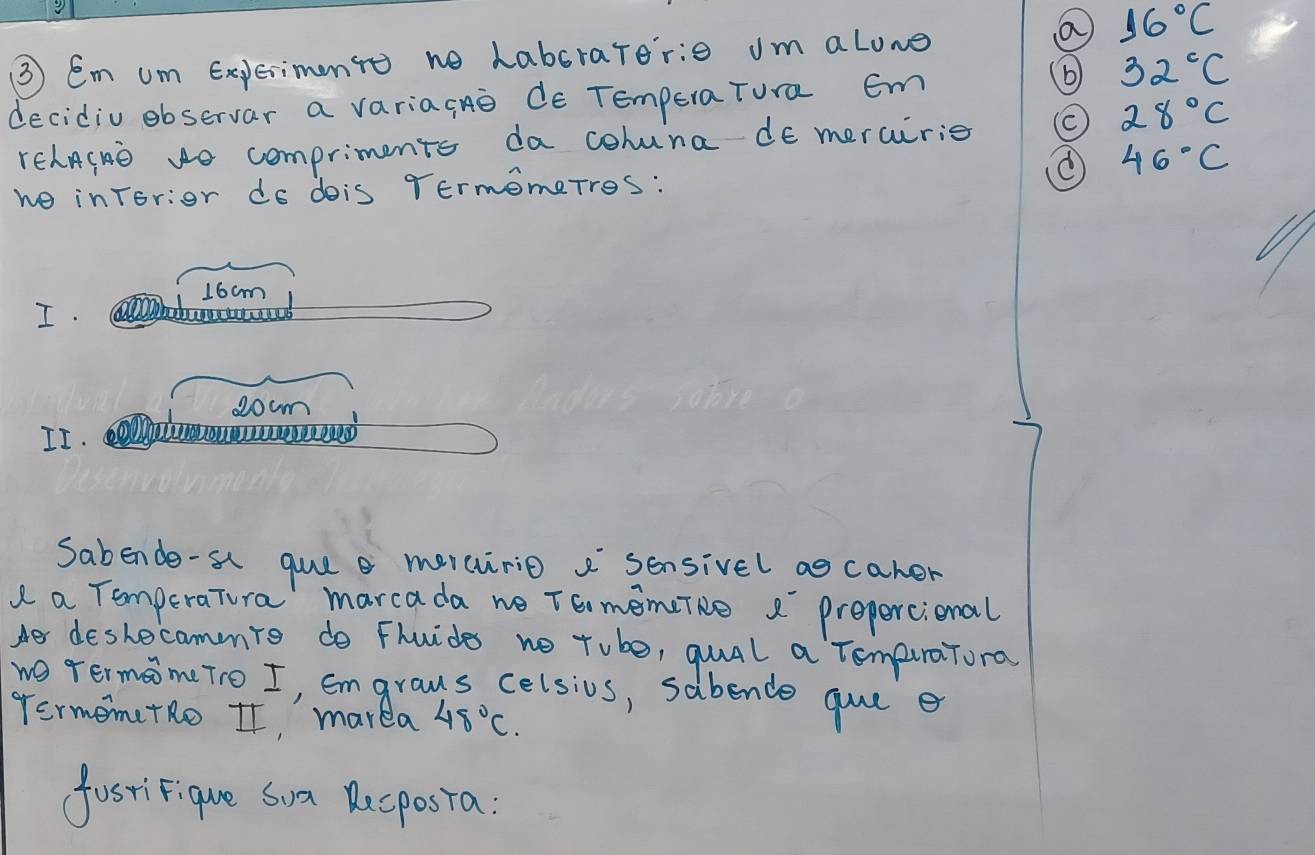 ③ Em um Experimento no Laboratório um aluno
decidiu observar a variação de Temperatura Em
relação ao comprimento da coluna de mercúrio
no interior de dois Termômetros:
I. 16cm
II. 20cm
Sabendo-se que o mercúrio é sensível ao calor
e a Temperatura marcada no Termômetro é proporcional
ao deslocamento do Fluido no tubo, qual a Temperatura
no Termômetro I, em graus Celsius, sabendo que o
Termômetro II, marca 48°C.
Justifique sua Resposta:
ⓐ 16°C
ⓑ 32°C
ⓒ 28°C
ⓓ 46°C